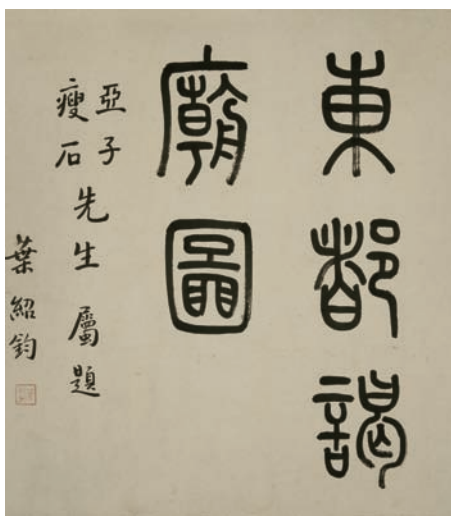 東都謁
廟圖
亞子
瘦石
先生屬題
葉紹鈞